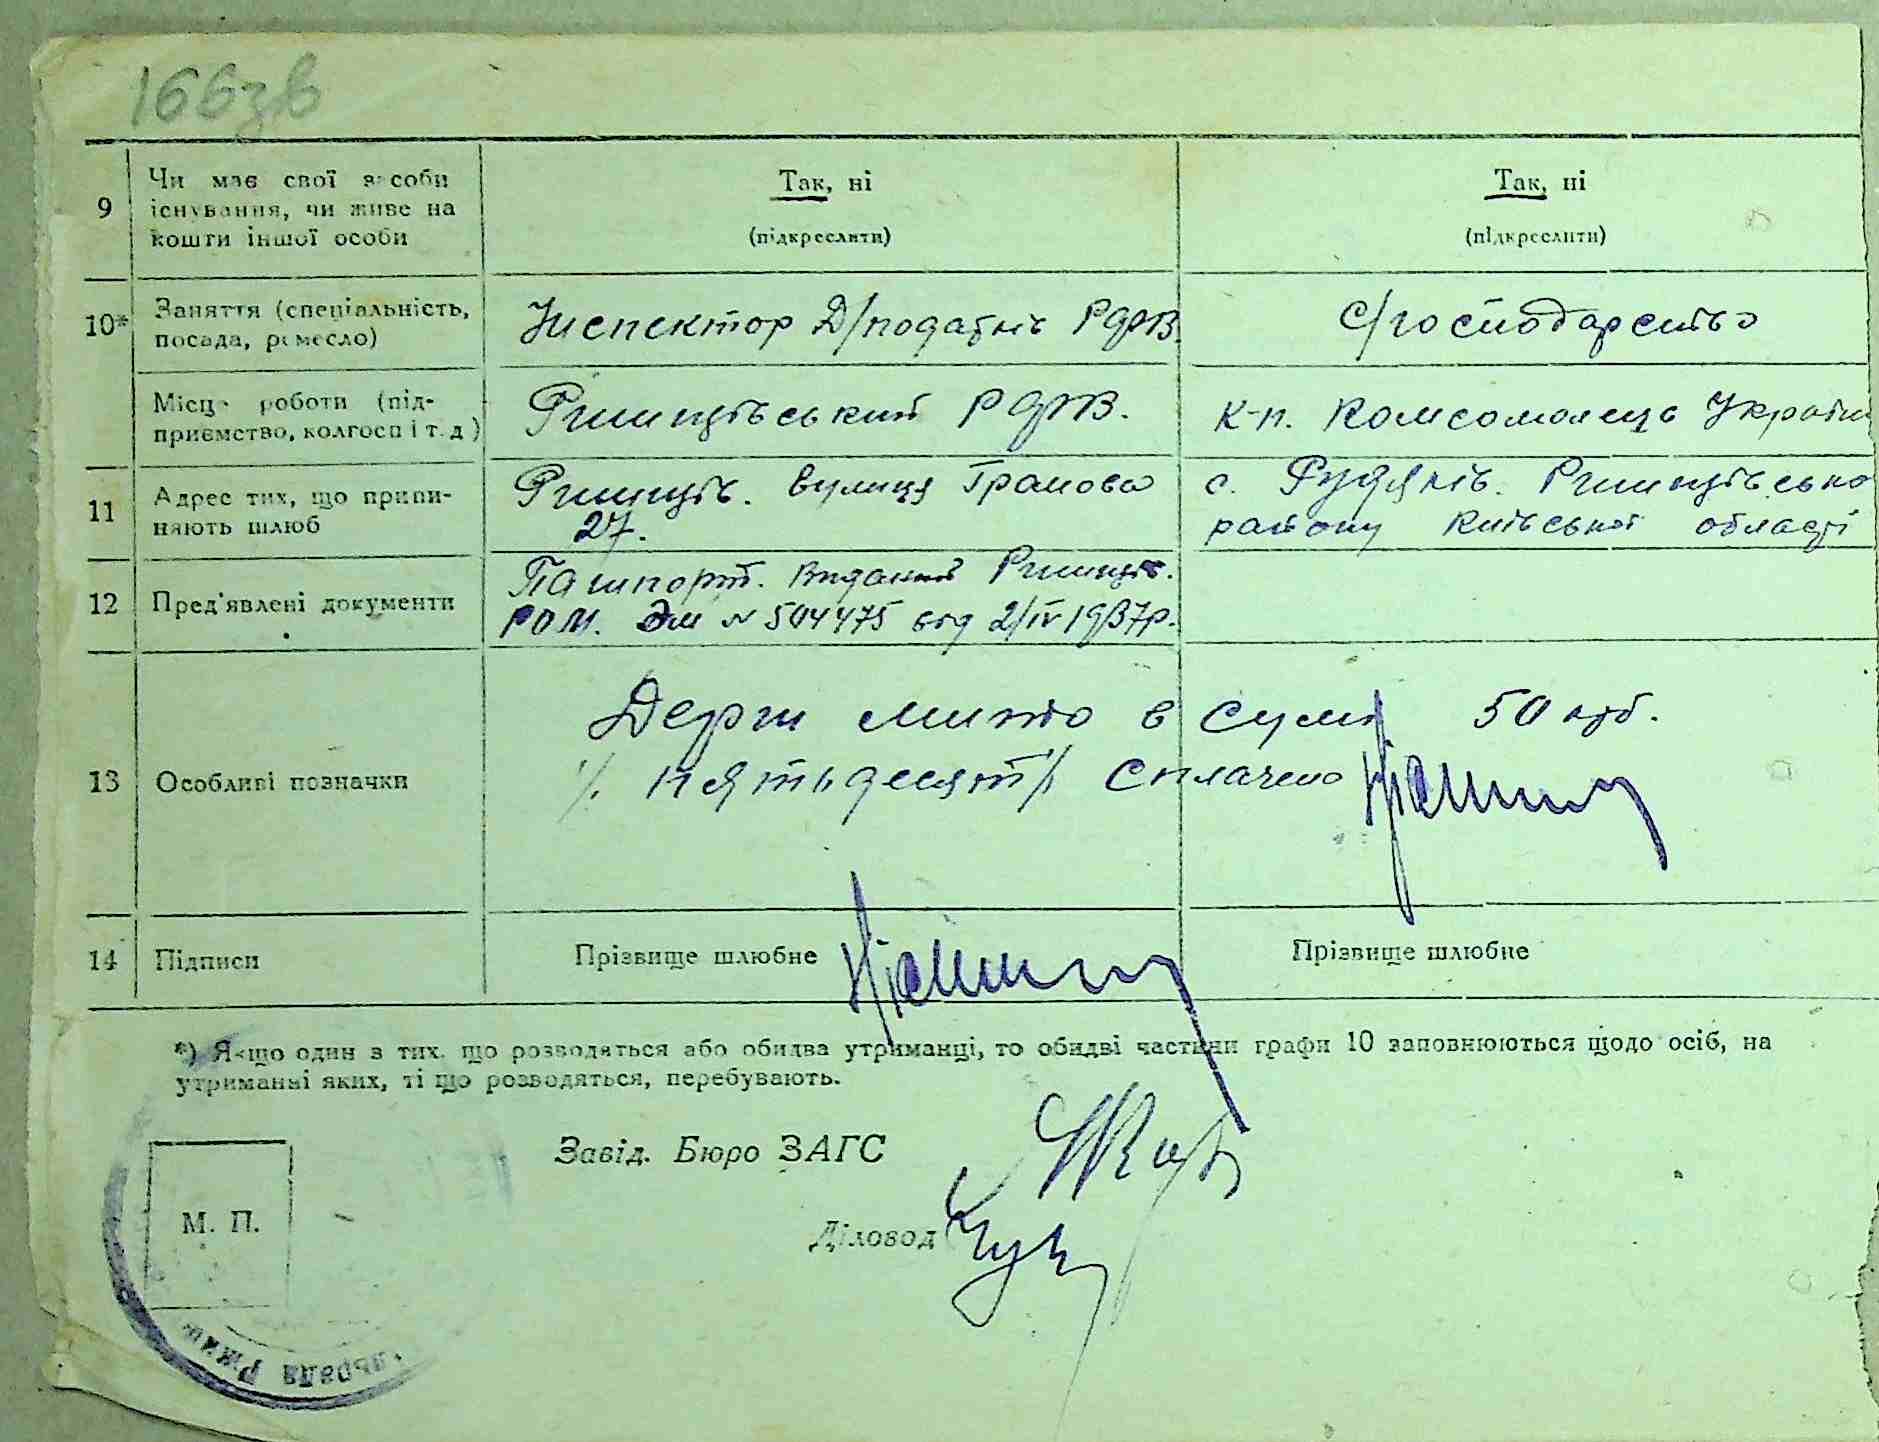 166зв
9
Чи має свої засоби
існування, чи живе на
кошти іншої особи
Так, ні
(підкреслити)
Так, ні
(підкреслити)
10*
Заняття (спеціальність,
посада, ремесло)
Інспектор Д/податків РФВ.
С/господарство
Місце роботи (під-
приємство, колгосп і т. д)
Ржищівський РФВ.
к-п. Комсомолець України
11
Адрес тих, що припи-
няють шлюб
Ржищів. вулиця
27.
с. Рудяків. Ржищівсько
району Київської області
12
Пред'явлені документи
Пашпорт. Виданий Ржищів.
РОМ. № 504475 від 2/IV 1937р.
13
Особливі позначки
Держ мито в сумі 50 крб.
/. пятьдесят/. сплачено
14
Підписи
Прізвище шлюбне
Прізвище шлюбне
*) Якщо один з тих, що розводяться або обидва утриманці, то обидві частини графи 10 заповнюються щодо осіб, на
утриманні яких, ті що розводяться, перебувають.
Завід. Бюро ЗАГС
Діловод
М. П.